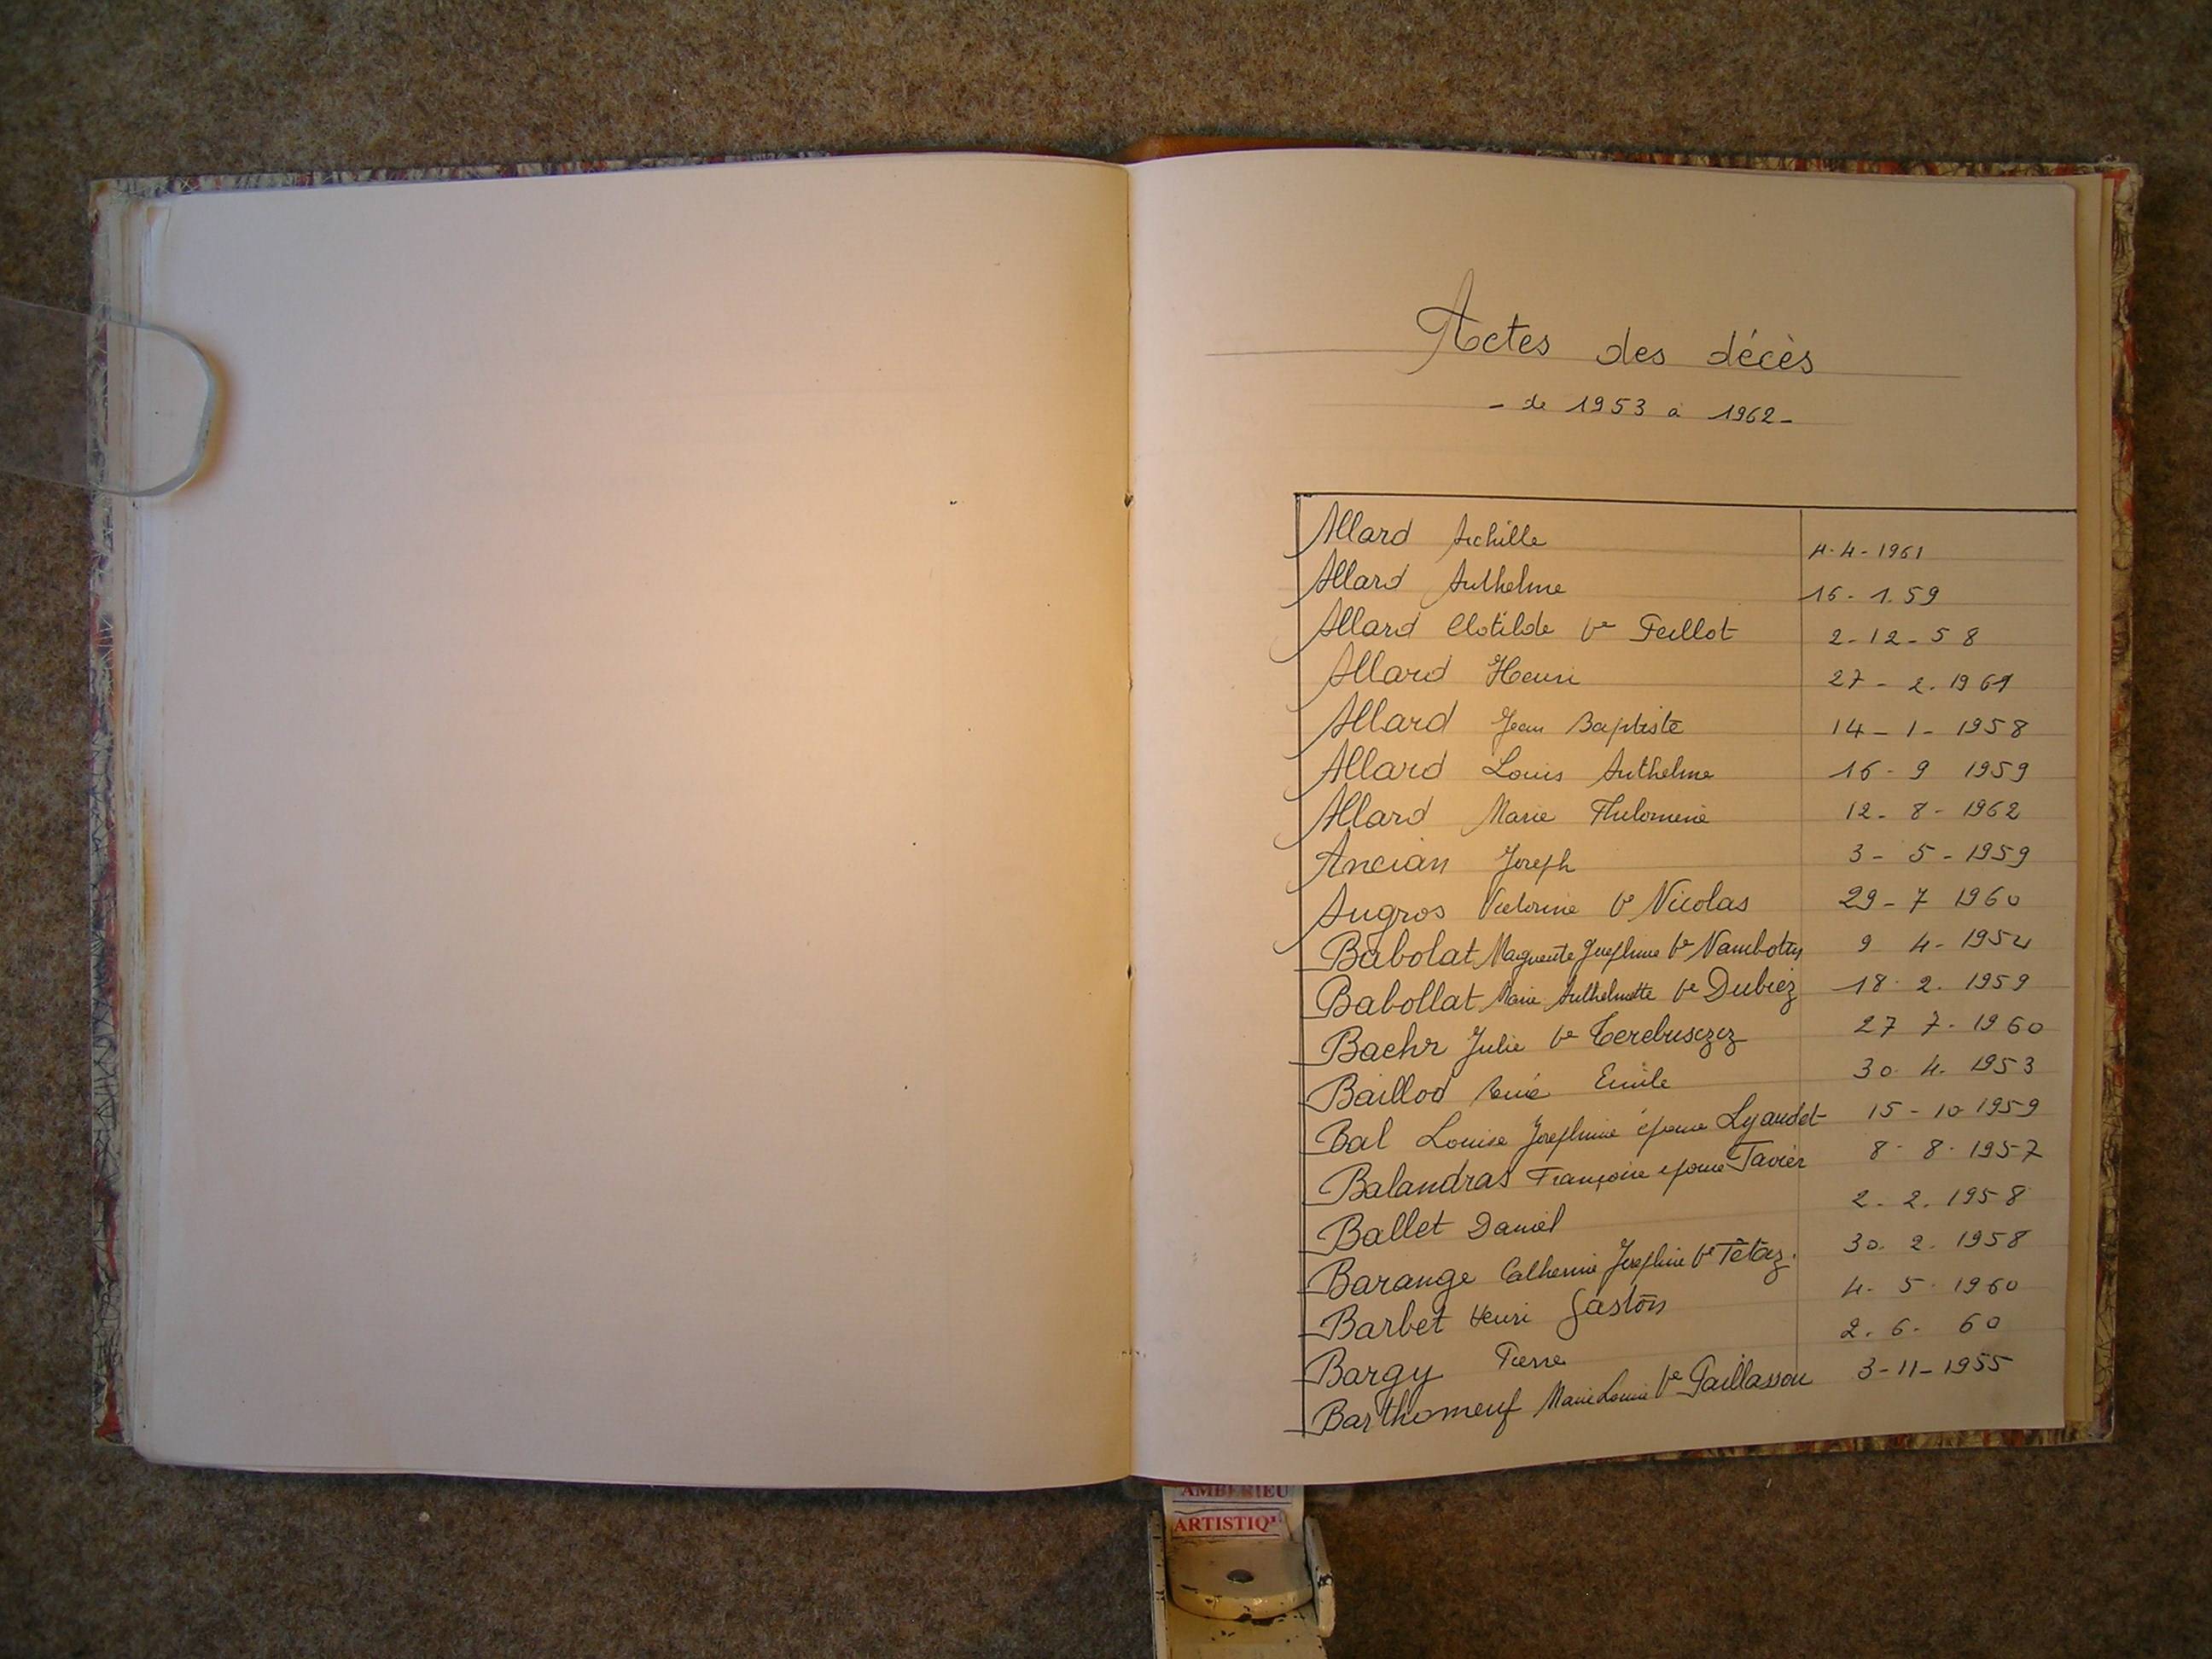 Actes des décès
- de 1953 à 1962 -
Allard Achille 4-4-1961
Allard Anthelme 16-1.59
Allard Clotilde Ve Feillot 2-12-58
Allard Henri 27-2.1961
Allard Jean Baptiste 14-1-1958
Allard Louis Anthelme 16-9 1959
Allard Marie Philomène 12-8-1962
Ancian Joseph 3-5-1959
Augros Victorine Ve Nicolas 29-7 1960
Babolat Marguerite Josephine Ve 9 4-1954
Babollat Marie Anthelmette Ve Dubiez 18.2.1959
Baehr Julie Ve 27 7.1960
Baillod René Emile 30.4.1953
Bal Louise Josephine épouse Lyaudet 15-10 1959
Balandras Françoise epouse Tavier 8-8.1957
Ballet Daniel 2.2.1958
Barange Catherine Josephine Ve Tétaz. 30.2.1958
Barbet Henri Gaston 4.5.1960
Bargy Pierre 2.6.60
Barthomeuf Marie Louise Ve Paillasson 3-11-1955
AMBERIEU
ARTISTIQ